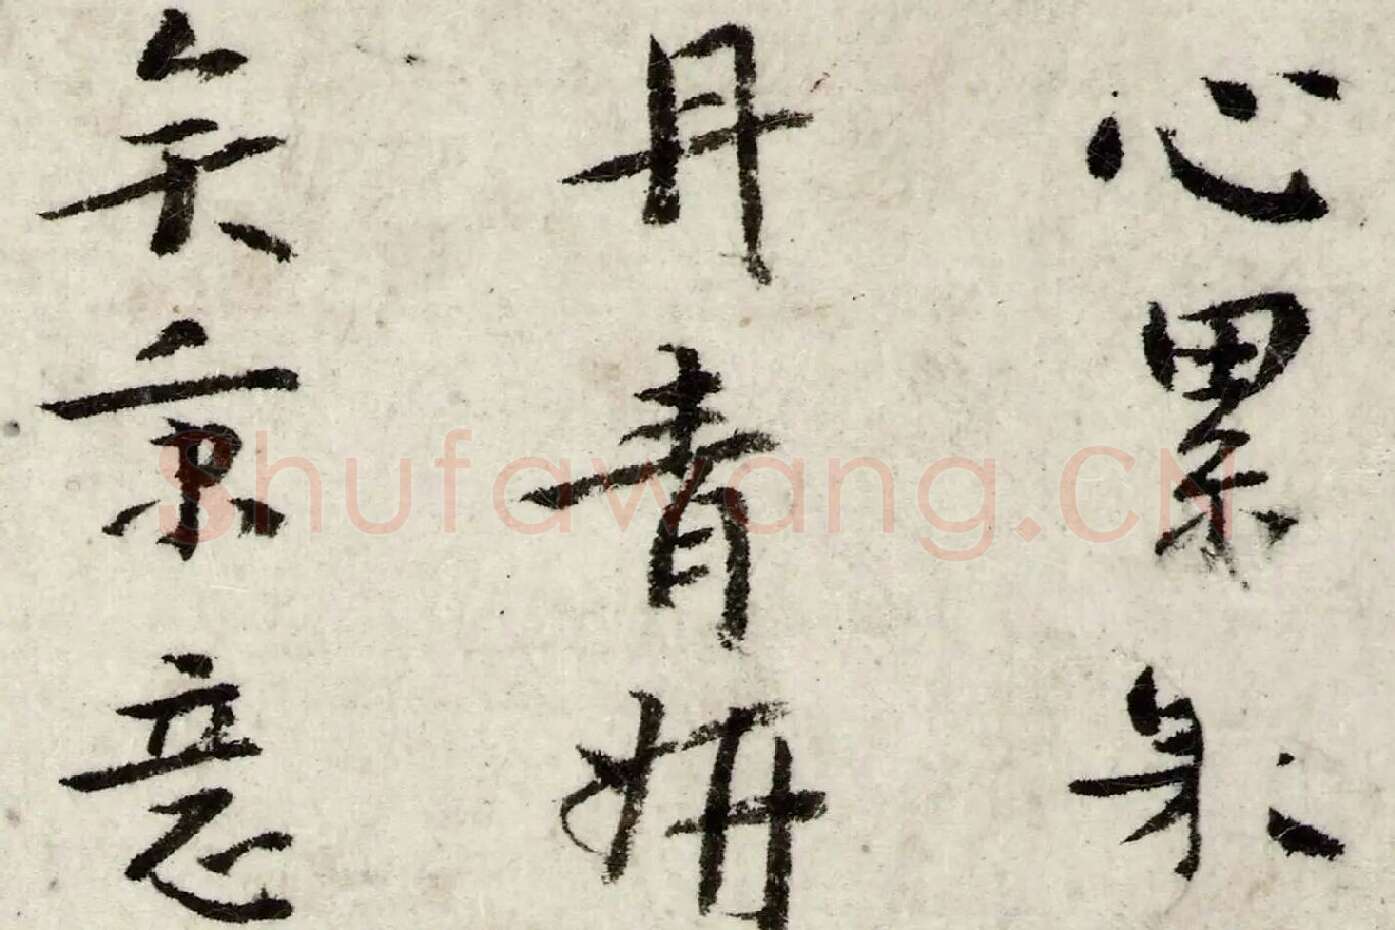 心累身
丹青妍
矣京意
Shufawang.CN